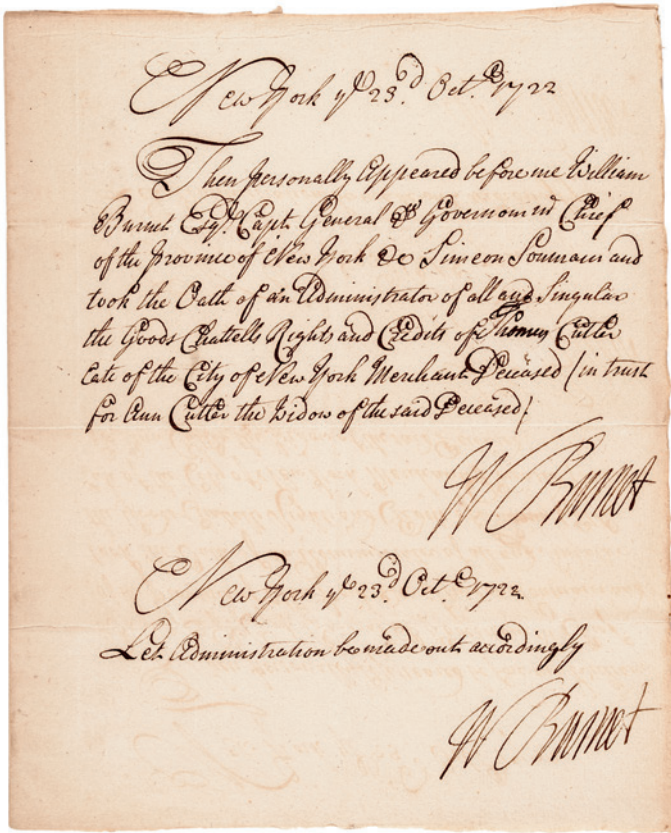 New York ye 23d. Octr. 1722
Then personally Appeared before me William
Burnet Esqr. Capt. General & Governour in Chief
of the Province of New York &c Simeon Soumain and
took the Oath of an Administrator of all and Singular
the Goods Chattells Rights and Credits of Thomas Cutler
Late of the City of New York Merchant Deceased (in trust
for Ann Cutler the Widow of the said Deceased)
W Burnet
New York ye 23d. Octr. 1722
Let Administration be made out accordingly
W Burnet